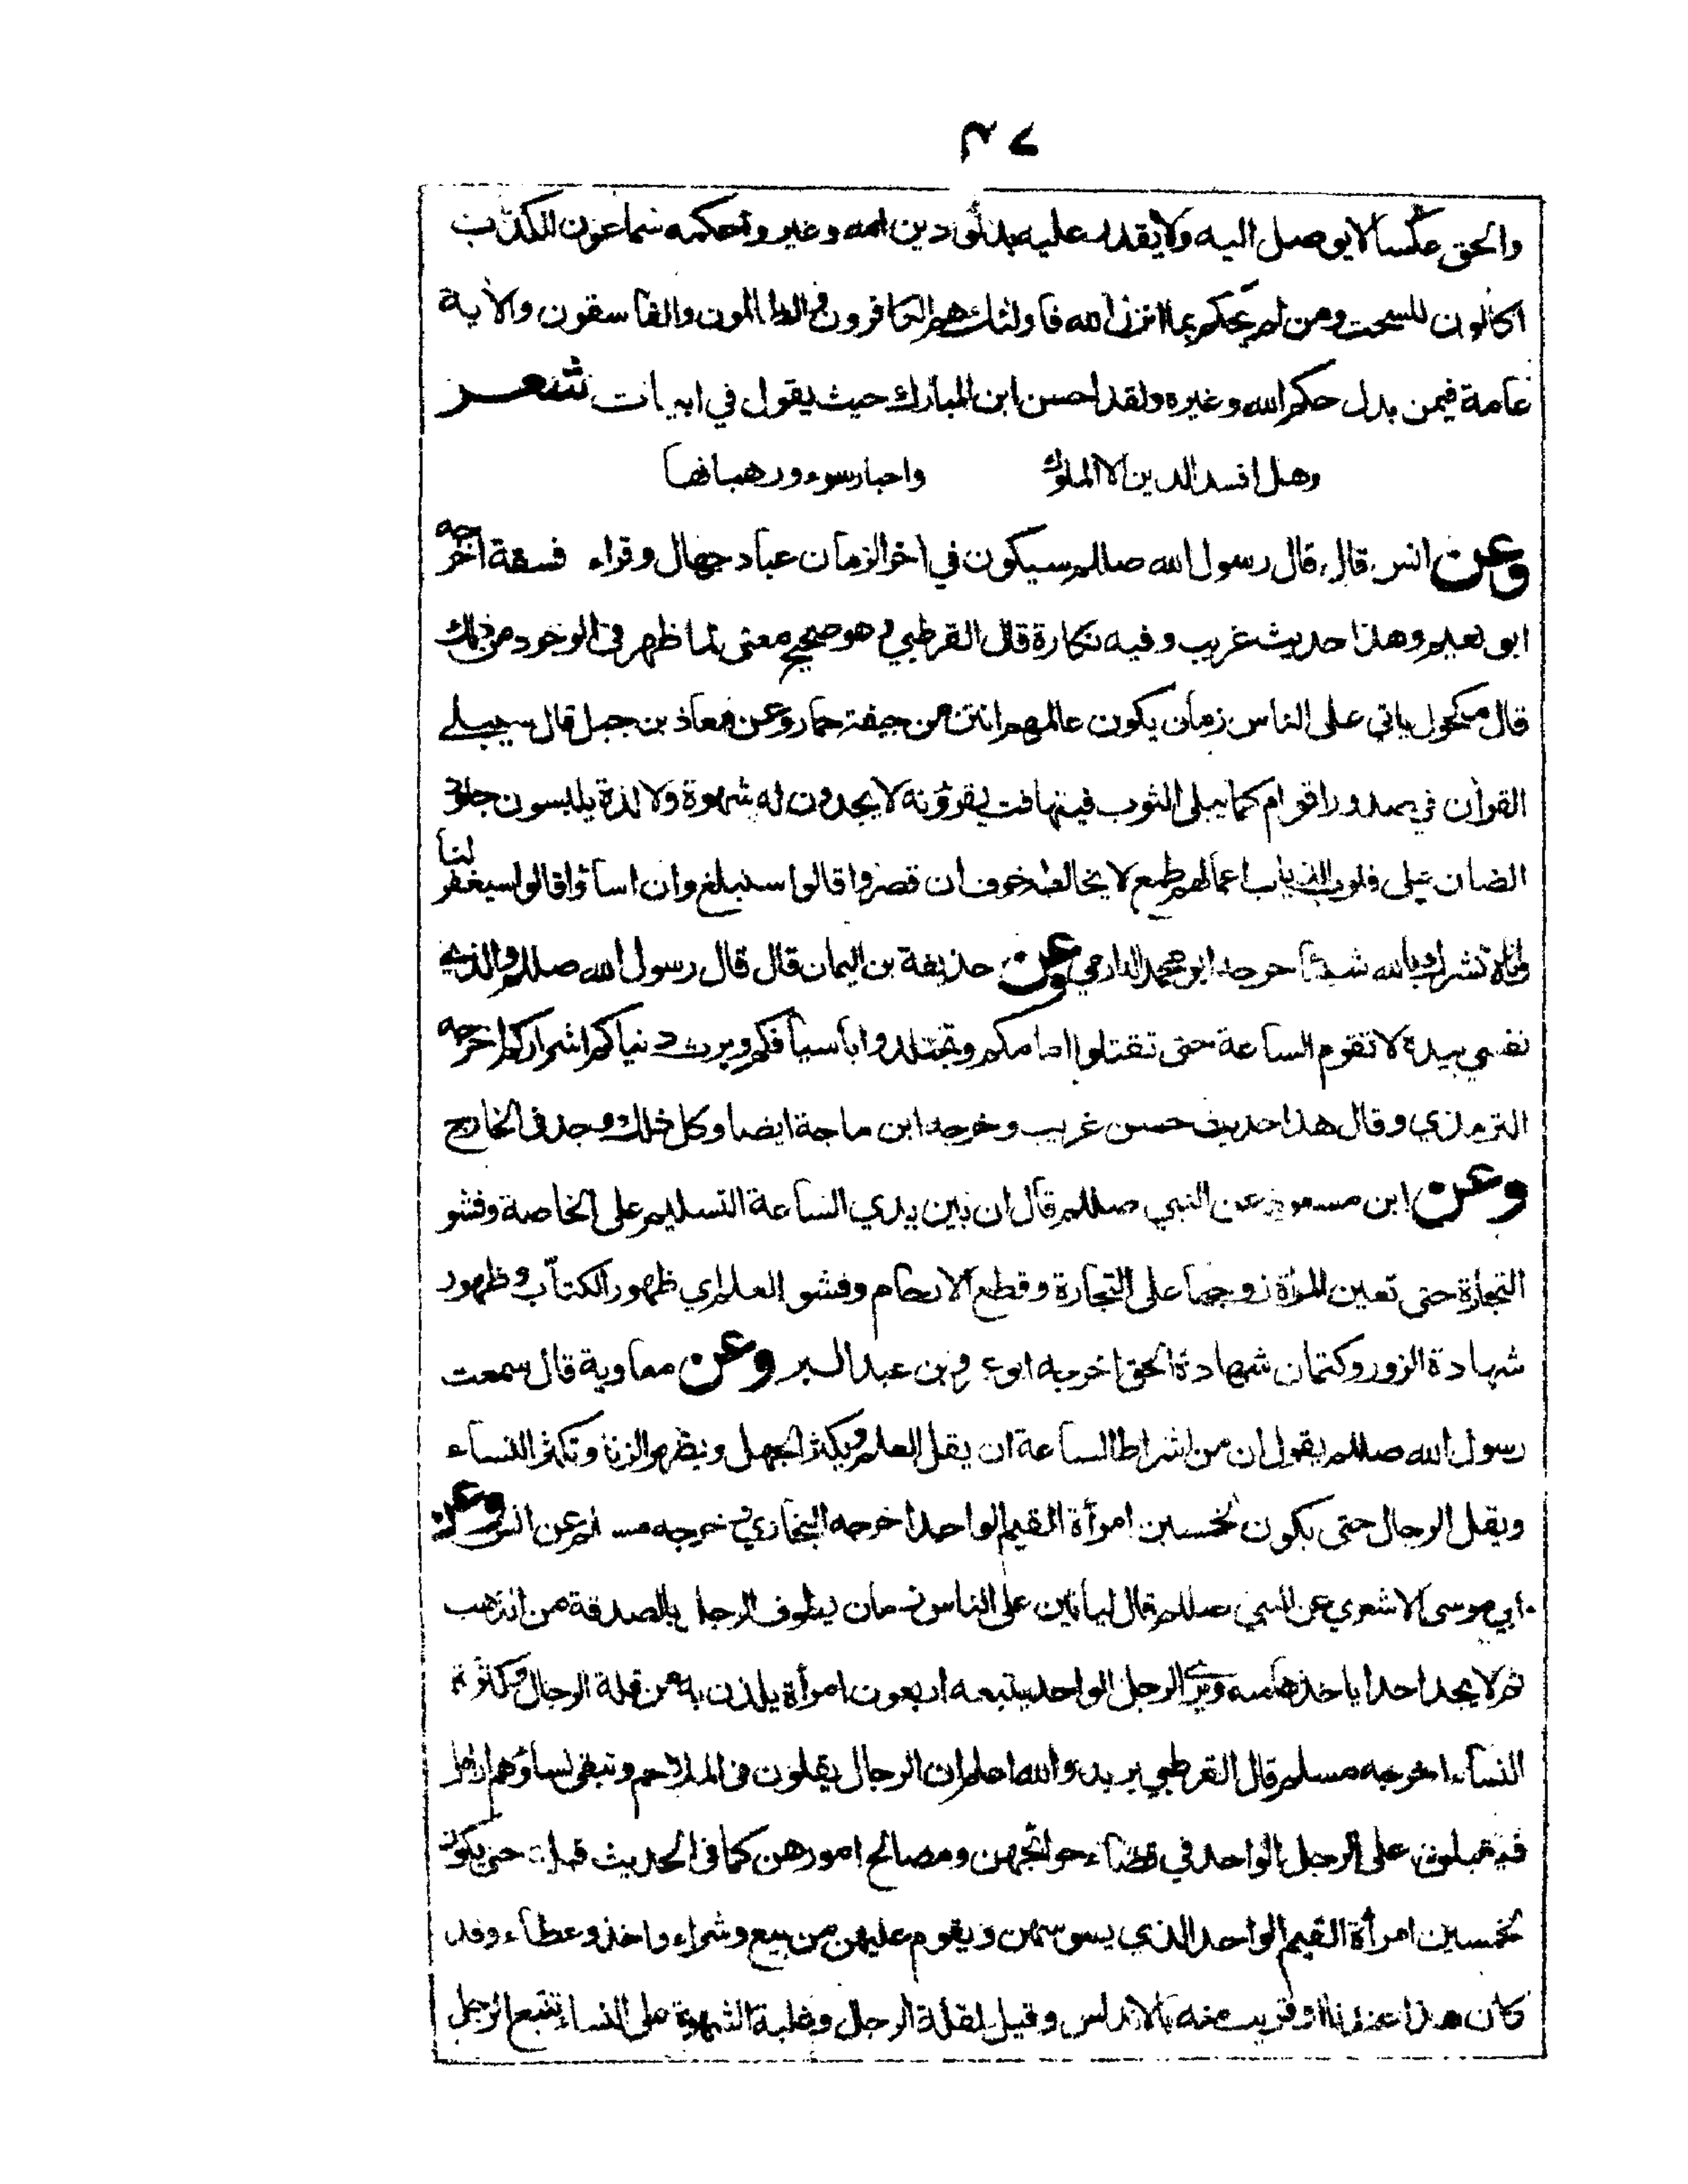 ٤٧
والحق عكسا لا يوصل اليه ولا يقدر عليه بدلوا دين الله وغيروا حكمه سماعون للكذب
اكالون للسحت ومن لم يحكم بما انزل الله فاولئك هم الكافرون و الظالمون والفاسقون والآية
عامة فيمن بدل حكم الله وغيره ولقد احسن ابن المبارك حيث يقول في ابيات شعر
وهل افسد الدين الا الملوك واحبار سوء ورهبانها
وعن انس قال قال رسول الله صللم سيكون في اخر الزمان عباد جهال وقراء فسقة اخرجه
ابو نعيم وهذا حديث غريب وفيه نكارة قال القرطبي و هو صحيح معنى لما ظهر في الوجود من ذلك
قال مكحول ياتي على الناس زمان يكون عالمهم انتن من جيفة حمار وعن معاذ بن جبل قال سيبلى
القرآن في صدور اقوام كما يبلى الثوب فيتهافت يقرؤنه لا يجدون له شهوة ولا لذة يلبسون جلود
الضان على قلوب الذياب اعمالهم طمع لا يخالطه خوف ان قصروا قالوا سنبلغ وان اساؤا قالوا سيغفر لنا
انا لا نشرك بالله شيئا خرجه ابو محمد الدارمي وعن حذيفة بن اليمان قال قال رسول الله صللم والذي
نفسي بيده لا تقوم الساعة حتى تقتلوا امامكم وتجتلدوا باسيافكم ويرث دنياكم اشراركم اخرجه
الترمذي وقال هذا حديث حسن غريب وخرجه ابن ماجة ايضا وكل ذلك وجد في الخارج
وعن ابن مسعود عن النبي صللم قال ان بين يدي الساعة التسليم على الخاصة وفشو
التجارة حتى تعين المرأة زوجها على التجارة وقطع الارحام وفشو العلم اي ظهور الكتاب وظهور
شهادة الزور وكتمان شهادة الحق اخرجه ابو عمر بن عبد البر وعن معاوية قال سمعت
رسول الله صللم يقول ان من اشراط الساعة ان يقل العلم ويكثر الجهل ويظهر الزنا وتكثر النساء
ويقل الرجال حتى يكون لخمسين امرأة القيم الواحد اخرجه البخاري و خرجه مسلم عن انس وعن
ابي موسى الاشعري عن النبي صللم قال لياتين على الناس زمان يطوف الرجل بالصدقة من الذهب
ثم لا يجد احدا ياخذها منه ويرى الرجل الواحد يتبعه اربعون امرأة يلذن به من قلة الرجال وكثرة
النساء اخرجه مسلم قال القرطبي يريد والله اعلم ان الرجال يقلون في الملاحم وتبقى نساؤهم ارامل
فيقبلون على الرجل الواحد في قضاء حوائجهن ومصالح امورهن كما في الحديث قبله حتى يكون
لخمسين امرأة القيم الواحد الذي يسوسهن ويقوم عليهن من بيع وشراء واخذ وعطاء وقد
كان هذا عندنا او قريب منه بالاندلس وقيل لقلة الرجال وغلبة الشهوة على النساء تتبع الرجل